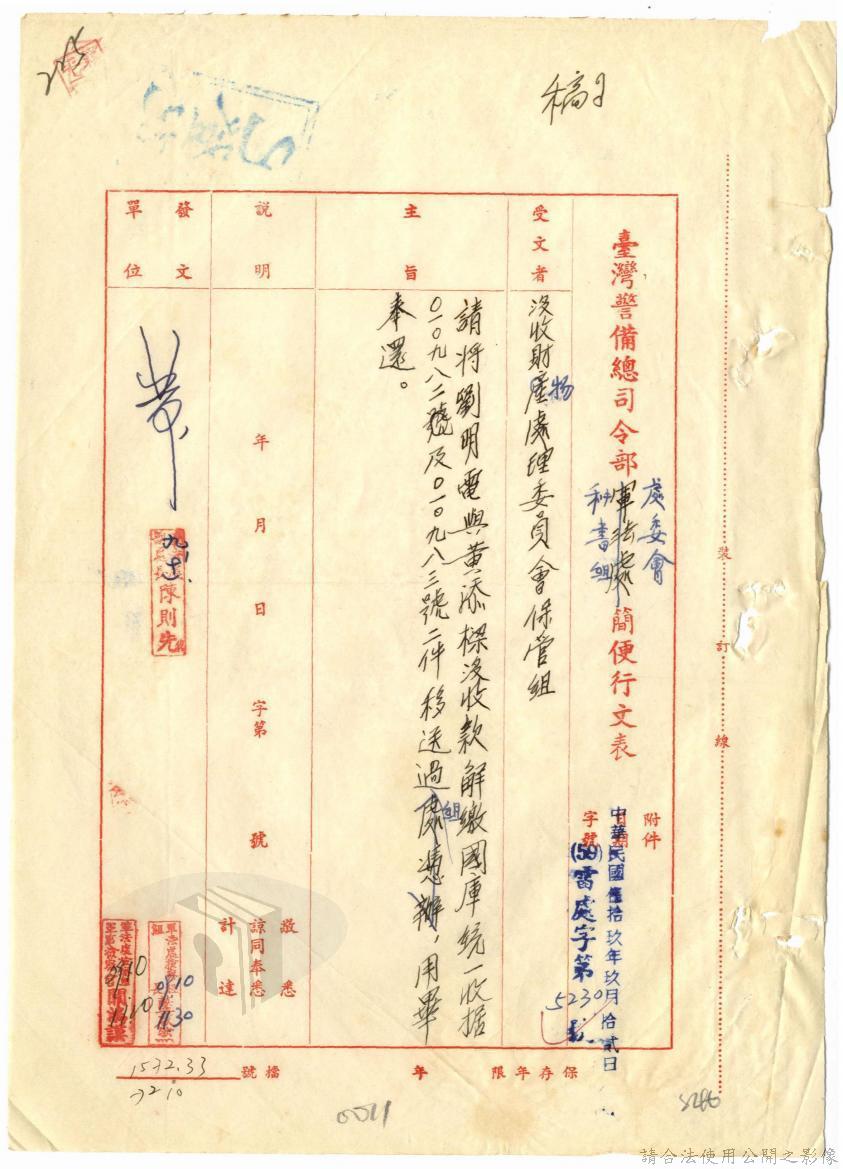 稿
臺灣警備總司令部軍法處簡便行文表
處委會
秘書組
附件
日期
中華民國伍拾玖年玖月拾貳日
字號
(59)雷處字第5230號
受文者
沒收財產處理委員會保管組
物
主旨
請將劉明電與黃添樑沒收款解繳國庫統一收据
〇一〇九八二號及〇一〇九八三號二件移送過處憑辦，用畢
組
奉還。
說明
年月日字第號
敬悉
諒同奉悉
計達
發文單位
陳則先
0910
1130
0910
1320
裝訂線
保存年限
年
檔號
1572.33
3210
0011
5286
請合法使用公開之影像